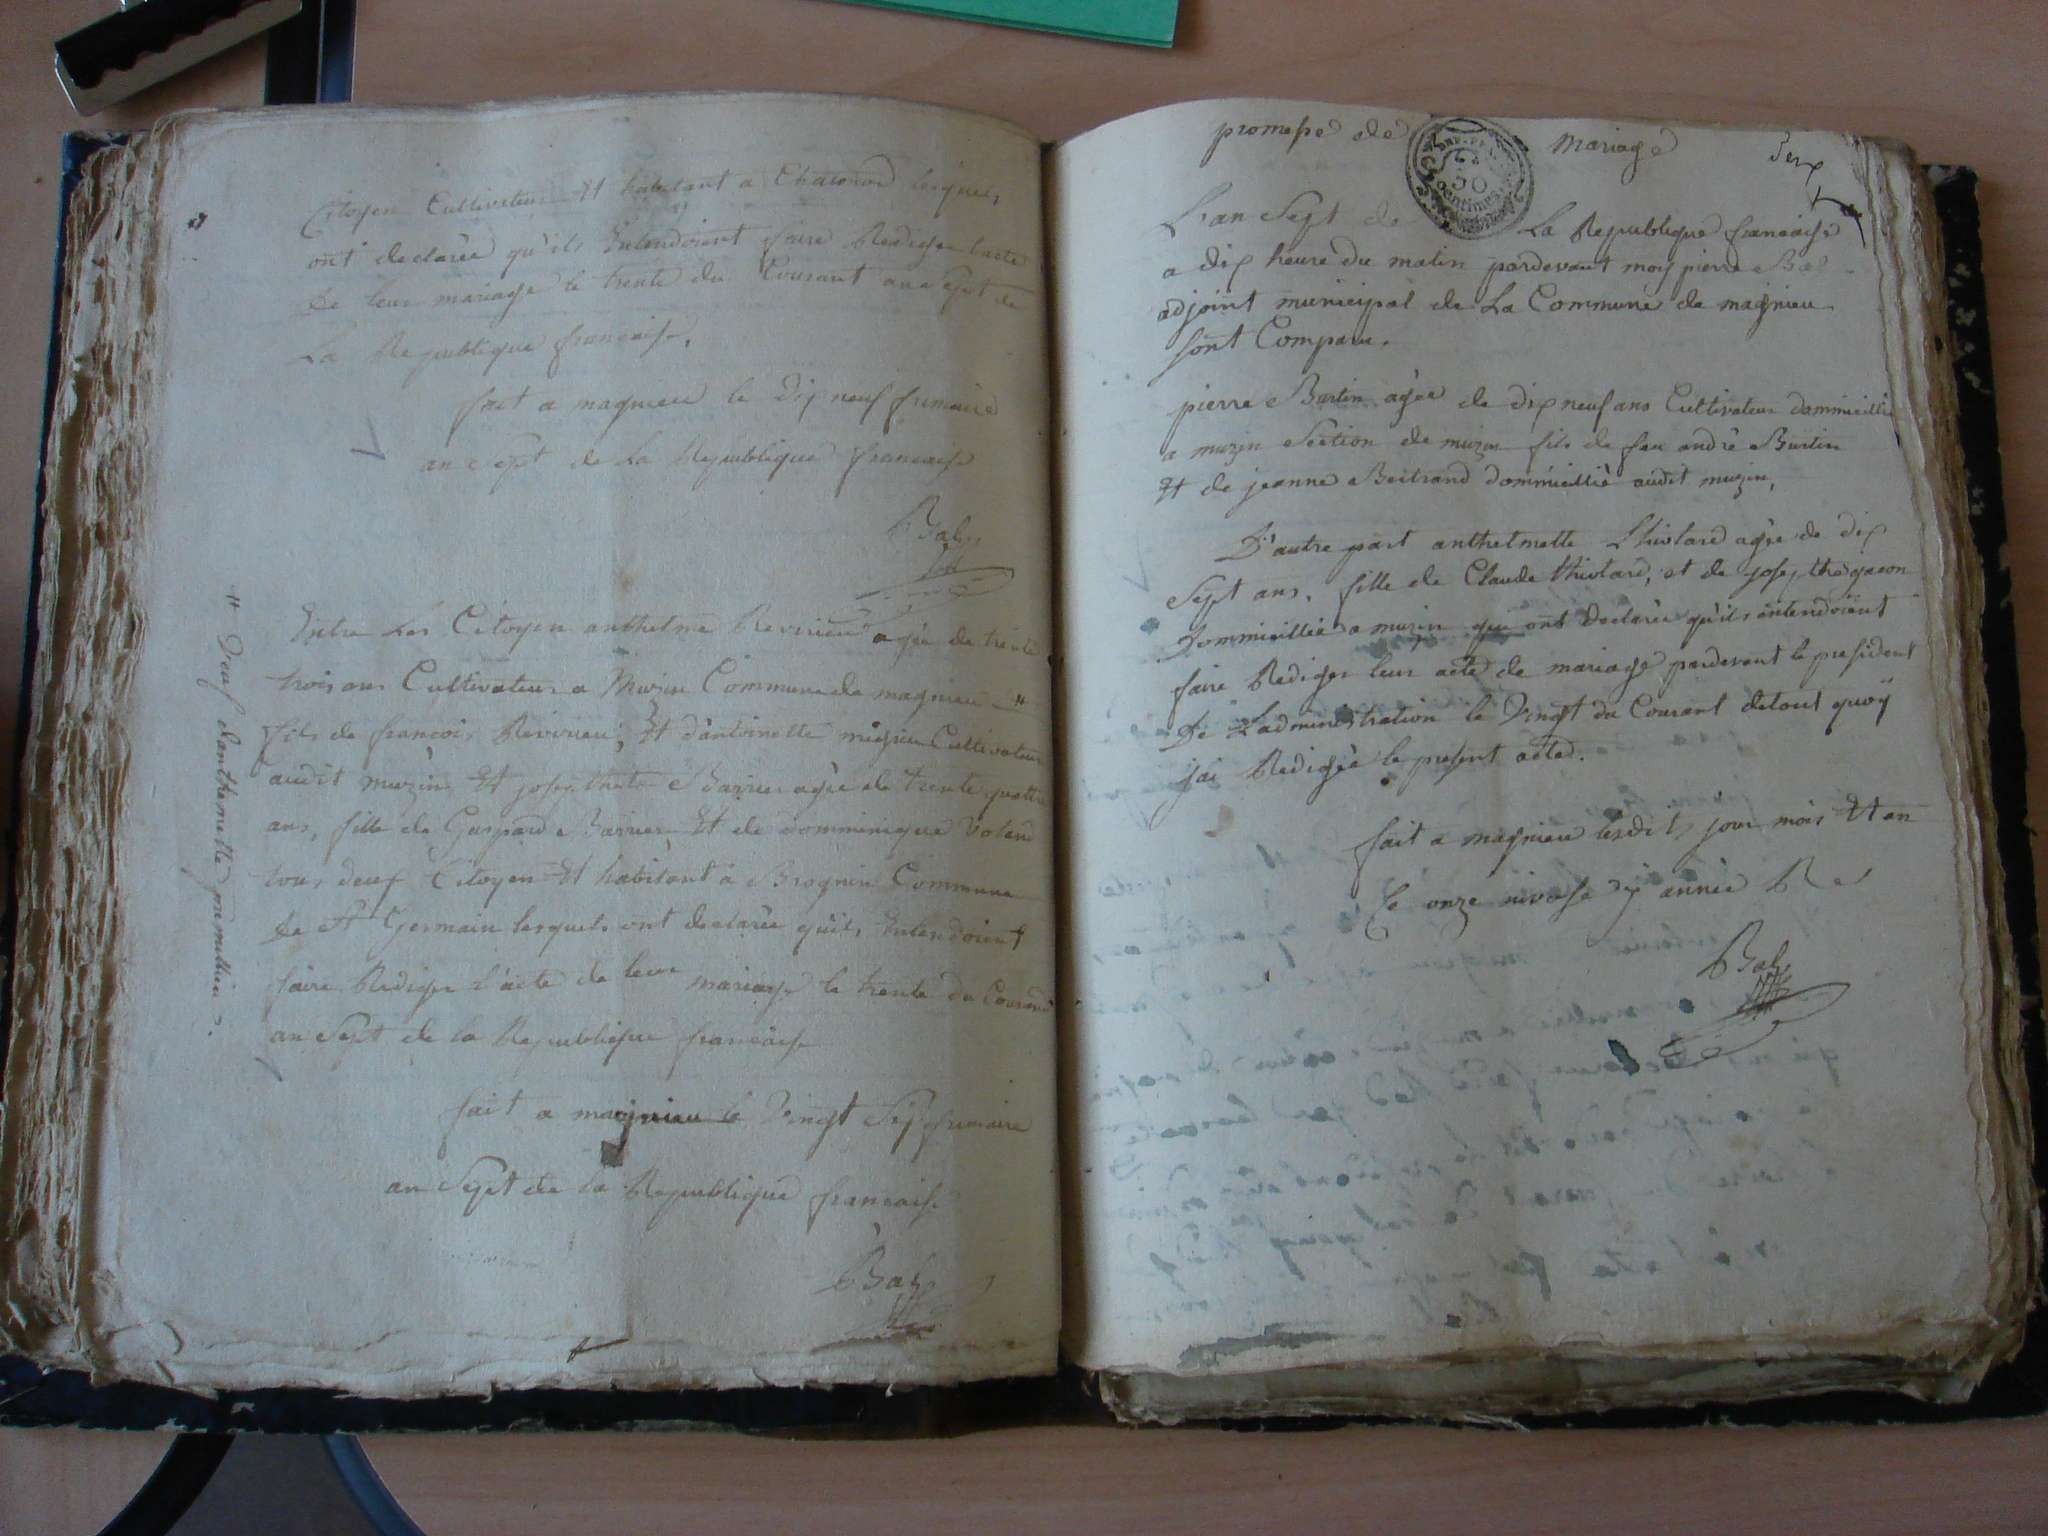 Citoyen Cultivateur Et habitant a Charonod lesquels
ont declarée qu'ils Entendoient faire Rediger lacte
De leur mariage le trente du Courant an Sept de
La Republique francaise.
fait a magnieu le dix neuf frimaire
an Sept de La Republique francaise
Bal
Entre Les Citoyen anthelme Revirieu agée de trente
trois ans Cultivateur a Muzin Commune de magnieu #
fils de francois Revirieu; Et d'antoinette migieu Cultivateur
audit muzin Et josephete Barrier agée de trente quatre
ans, fille de Gaspard Barrier Et de domminique
tous deux Citoyen Et habitant a Brognin Commune
De St Germain lesquels ont declarée qu'ils Entendoient
faire Rediger l'acte de leur mariage le trente du Courant
an Sept de la Republique francaise
fait a magnieu le Vingt Sep frimaire
an Sept de la Republique francaise
Bal
# Veuf d'anthelmette
promesse de mariage
L'an Sept de La Republique francaise
a dix heure du matin pardevant moy pierre Bal
adjoint municipal de La Commune de magnieu
sont Comparu.
pierre Burtin agée de dix neuf ans Cultivateur dommicillié
a muzin Section de muzin fils de feu andré Burtin
Et de jeanne Bertrand dommicillié audit muzin,
D'autre part anthelmette thivlard agée de dix
Sept ans, fille de Claude thivlard, et de josephe gacon
Dommicillié a muzin qui ont declarée qu'ils entendoient
faire Rediger leur acte de mariage pardevant le president
De L'administration le Vingt du Courant detout quoy
jai Redigée le present acte.
fait a magnieu lesdits jour mois Et an
Ce onze nivose année
Bal
50
centimes